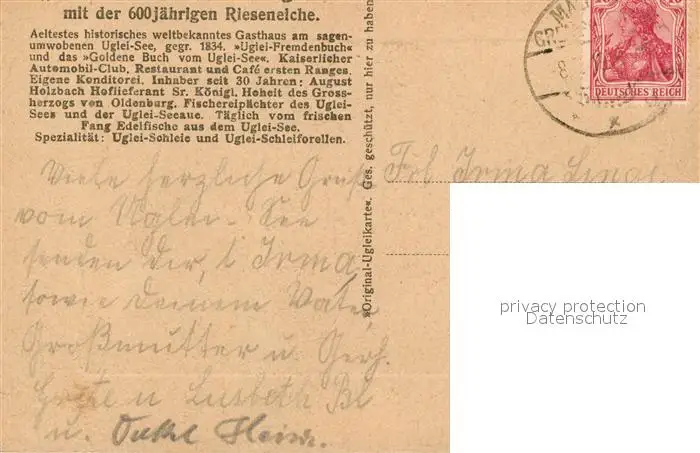 mit der 600jährigen Rieseneiche.
Aeltestes historisches weltbekanntes Gasthaus am sagen-
umwobenen Uglei-See, gegr. 1834. »Uglei-Fremdenbuch«
und das »Goldene Buch vom Uglei-See«. Kaiserlicher
Automobil-Club. Restaurant und Café ersten Ranges.
Eigene Konditorei. Inhaber seit 30 Jahren: August
Holzbach Hoflieferant Sr. Königl. Hoheit des Gross-
herzogs von Oldenburg. Fischereipächter des Uglei-
Sees und der Ugleeaue. Täglich vom frischen
Fang Edelfische aus dem Uglei-See.
Spezialität: Uglei-Schleie und Uglei-Schleiforellen.
Viele herzliche Grüße
vom Uglei-See
senden dir, l. Irma,
sowie deinem Vater,
Großmutter u. Gerh.
Grete u Lisbeth
u. Onkel
»Original-Ugleikarte«. Ges. geschützt, nur hier zu haben
Frl Irma
DEUTSCHES REICH
privacy protection
Datenschutz